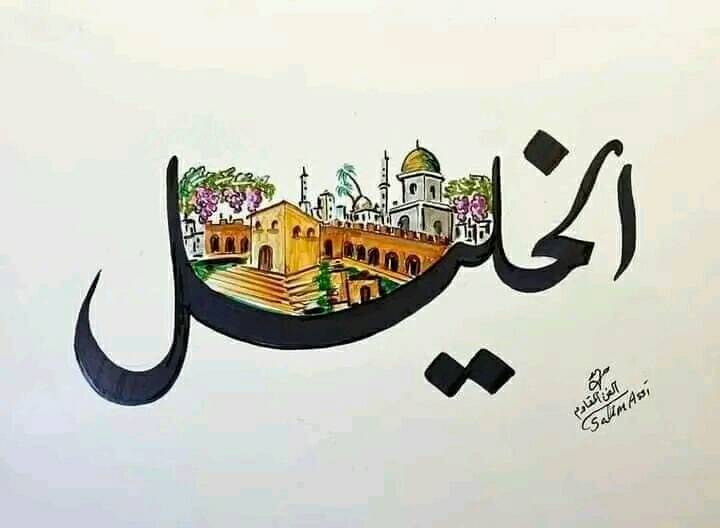 الخليل
الفن القادم
Salim Assi